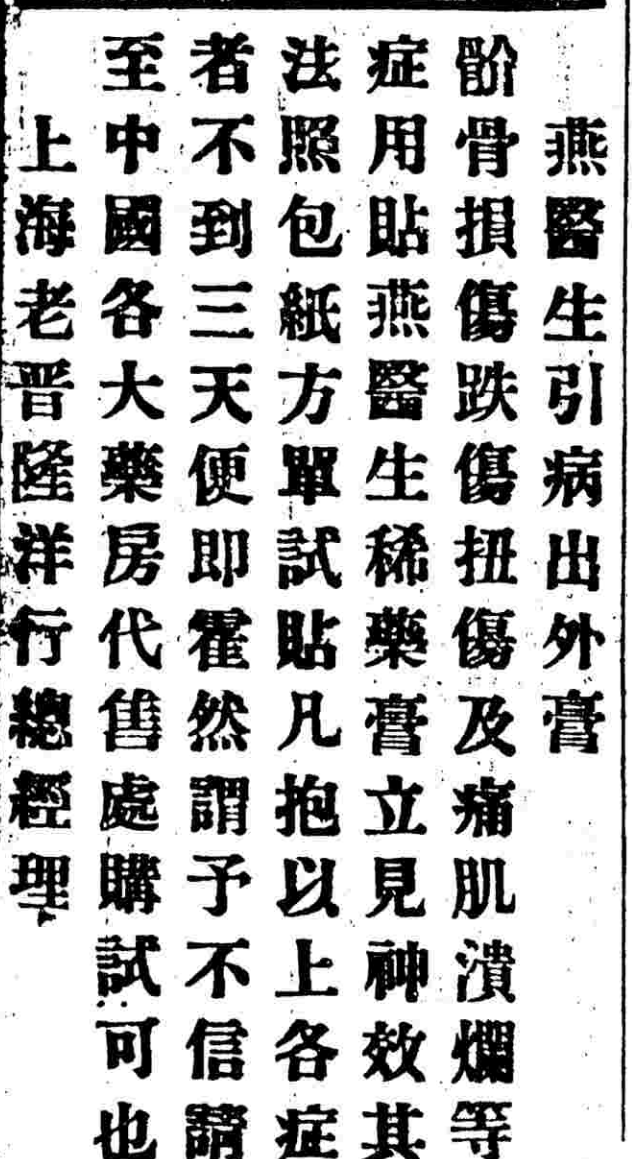 燕醫生引病出外膏
骱骨損傷跌傷扭傷及痛肌潰爛等
症用貼燕醫生稀藥膏立見神效其
法照包紙方單試貼凡抱以上各症
者不到三天便即霍然謂予不信請
至中國各大藥房代售處購試可也
上海老晋隆洋行總經理